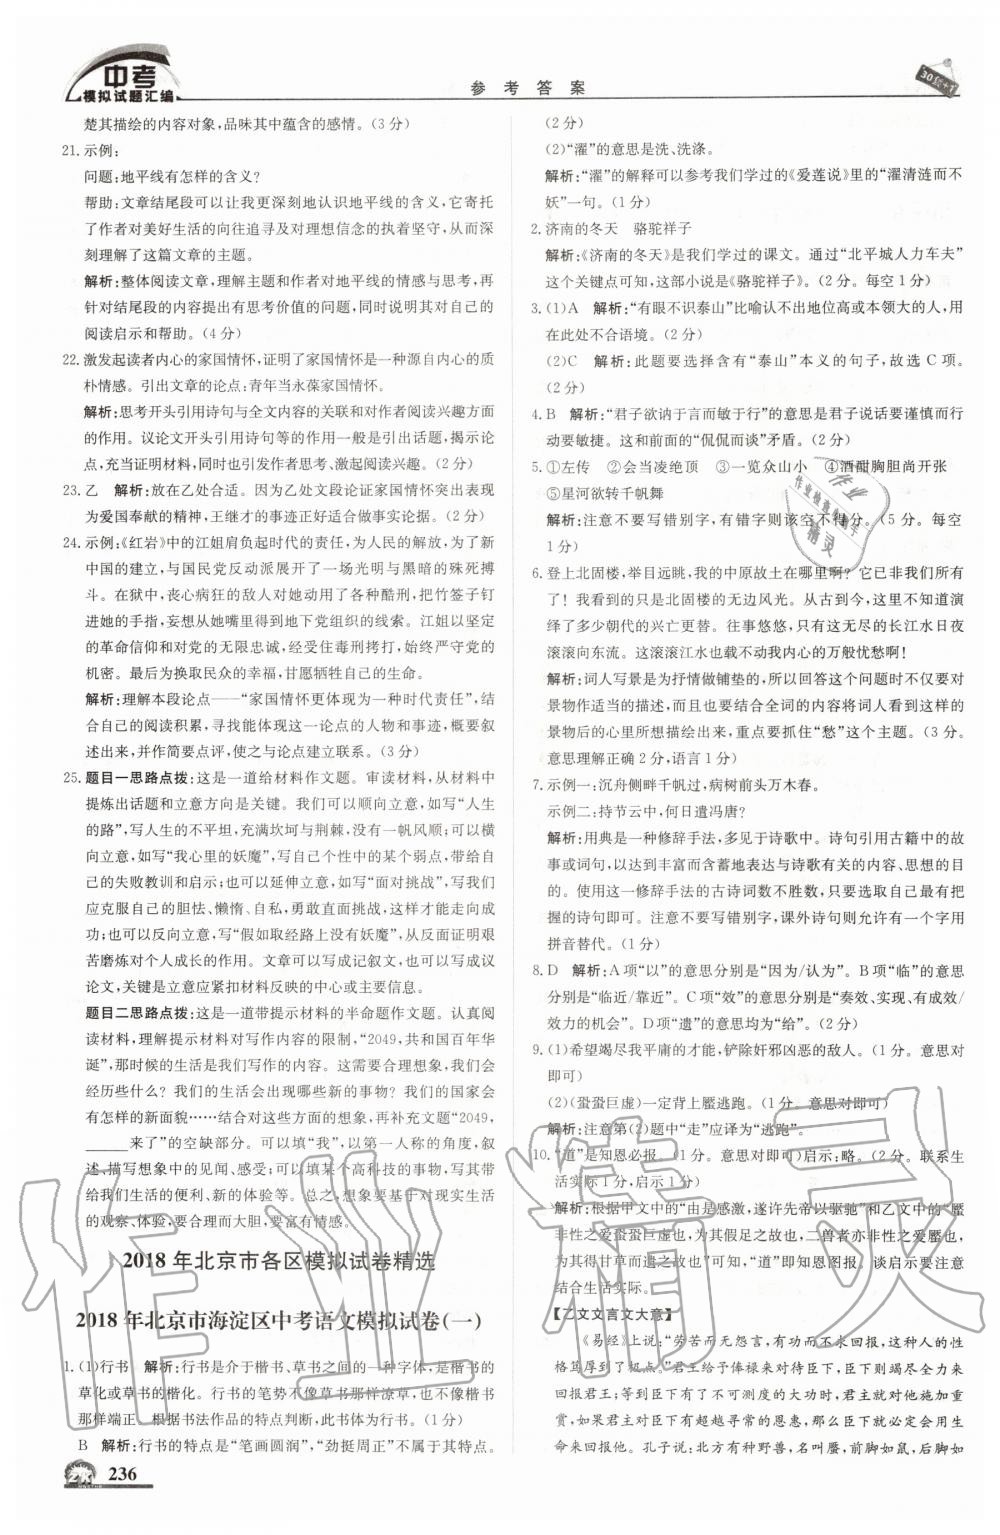 中考
模拟试题汇编
参考答案
楚其描绘的内容对象,品味其中蕴含的感情。(3分)
21. 示例:
问题:地平线有怎样的含义?
帮助:文章结尾段可以让我更深刻地认识地平线的含义,它寄托
了作者对美好生活的向往追寻及对理想信念的执着坚守,从而
深刻理解了这篇文章的主题。
解析:整体阅读文章,理解主题和作者对地平线的情感与思考,再
针对结尾段的内容提出有思考价值的问题,同时说明其对自己的
阅读启示和帮助。(4分)
22. 激发起读者内心的家国情怀,证明了家国情怀是一种源自内心的质
朴情感。引出文章的论点:青年当永葆家国情怀。
解析:思考开头引用诗句与全文内容的关联和对作者阅读兴趣方面
的作用。议论文开头引用诗句等的作用一般是引出话题、引出论
点,充当证明材料,同时也引发作者思考、激起阅读兴趣。(2分)
23. 乙 解析:放在乙处合适。因为乙处文段论证家国情怀突出表现
为爱国奉献的精神,王继才的事迹正好适合做事实论据。(2分)
24. 示例:《红岩》中的江姐肩负起时代的责任,为人民的解放,为了新
中国的建立,与国民党反动派展开了一场光明与黑暗的殊死搏
斗。在狱中,丧心病狂的敌人对她动用了各种酷刑,把竹签子钉
进她的手指,妄想从她嘴里得到地下党组织的线索。江姐以坚定
的革命信仰和对党的无限忠诚,经受住毒刑拷打,始终严守党的
机密。最后为换取民众的幸福,甘愿牺牲自己的生命。
解析:理解本段论点——“家国情怀更体现为一种时代责任”,结
合自己的阅读积累,寻找能体现这一论点的人物和事迹,概要叙
述出来,并作简要点评,使之与论点建立联系。(3分)
25. 题目一思路点拨:这是一道给材料作文题。审读材料,从材料中
提炼出话题和立意方向是关键。我们可以顺向立意,如写“人生
的路”,写人生的不平坦,充满坎坷与荆棘,没有一帆风顺;可以横
向立意,如写“我心里的妖魔”,写自己个性中的某个弱点,带给自
己的失败教训和启示;也可以延伸立意,如写“面对挑战”,写我们
应克服自己的胆怯、懒惰、自私,勇敢直面挑战,这样才能走向成
功;也可以反向立意,写“假如取经路上没有妖魔”,从反面证明艰
苦磨炼对个人成长的作用。文章可以写成记叙文,也可以写成议
论文,关键是立意应紧扣材料反映的中心或主要信息。
题目二思路点拨:这是一道带提示材料的半命题作文题。认真阅
读材料,理解提示材料对写作内容的限制,“2049,共和国百年华
诞”,那时候的生活是我们写作的内容。这需要合理想象,我们会
经历些什么?我们的生活会出现哪些新的事物?我们的国家会
有怎样的新面貌……结合对这些方面的想象,再补充文题“2049,
______来了”的空缺部分。可以填“我”,以第一人称的角度,叙
述、描写想象中的见闻、感受;可以填某个高科技的事物,写其带
给我们生活的便利、新的体验等。总之,想象要基于对现实生活
的观察、体验,要合理而大胆,要富有情感。
2018年北京市各区模拟试卷精选
2018年北京市海淀区中考语文模拟试卷(一)
1. (1)行书 解析:行书是介于楷书、草书之间的一种字体,是楷书的
草化或草书的楷化。行书的笔势不像草书那样潦草,也不像楷书
那样端正。根据书法作品的特点判断,此书体为行书。(1分)
B 解析:行书的特点是“笔画圆润”,“劲挺周正”不是行书特点。
(2分)
(2)“濯”的意思是洗、洗涤。
解析:“濯”的解释可以参考我们学过的《爱莲说》里的“濯清涟而不
妖”一句。(1分)
2. 济南的冬天 骆驼祥子
解析:《济南的冬天》是我们学过的课文。通过“北平城人力车夫”
这个关键点可知,这部小说是《骆驼祥子》。(2分。每空1分)
3. (1)A 解析:“有眼不识泰山”比喻认不出地位高或本领大的人,用
在此处不合语境。(2分)
(2)C 解析:此题要选择含有“泰山”本义的句子,故选C项。
(2分)
4. B 解析:“君子欲讷于言而敏于行”的意思是君子说话要谨慎而行
动要敏捷。这和前面的“侃侃而谈”矛盾。(2分)
5. ①左传 ②会当凌绝顶 ③一览众山小 ④酒酣胸胆尚开张
⑤星河欲转千帆舞
解析:注意不要写错别字,有错字则该空不得分。(5分。每空
1分)
6. 登上北固楼,举目远眺,我的中原故土在哪里啊?它已非我们所有
了!我看到的只是北固楼的无边风光。从古到今,这里不知道演
绎了多少朝代的兴亡更替。往事悠悠,只有这无尽的长江水日夜
滚滚向东流。这滚滚江水也载不动我内心的万般忧愁啊!
解析:词人写景是为抒情做铺垫的,所以回答这个问题时不仅要对
景物作适当的描述,而且要结合全词的内容将词人看到这样的
景物后的心里所想描绘出来,重点要抓住“愁”这个主题。(3分。
意思理解正确2分,语言1分)
7. 示例一:沉舟侧畔千帆过,病树前头万木春。
示例二:持节云中,何日遣冯唐?
解析:用典是一种修辞手法,多见于诗歌中。诗句引用古籍中的故
事或词句,以达到丰富而含蓄地表达与诗歌有关的内容、思想的目
的。使用这一修辞手法的古诗词数不胜数,只要选取自己最有把
握的诗句即可。注意不要写错别字,课外诗句则允许有一个字用
拼音替代。(1分)
8. D 解析:A项“以”的意思分别是“因为/认为”。B项“临”的意思
分别是“临近/靠近”。C项“效”的意思分别是“奏效、实现、有成效/
效力的机会”。D项“遗”的意思均为“给”。(2分)
9. (1)希望竭尽我平庸的才能,铲除奸邪凶恶的敌人。(1分。意思对
即可)
(2)(蛩蛩巨虚)一定背上蟨逃跑。(1分。意思对即可)
解析:注意第(2)题中“走”应译为“逃跑”。
10. “道”是知恩必报。(1分。意思对即可)启示:略。(2分。联系生
活实际1分,启示1分)
解析:根据甲文中的“由是感激,遂许先帝以驱驰”和乙文中的“蟨
非性之爱蛩蛩巨虚也,为其假足之故也,二兽者亦非性之爱蟨也,
为其得甘草而遗之故也”可知,“道”即知恩图报。谈启示要注意
结合生活实际。
【乙文文言文大意】
《易经》上说:“劳苦而无怨言,有功而不求回报,这种人的性
格笃厚到了极点。”君王给予俸禄来对待臣下,臣下则竭尽全力来
回报君王;等到臣下有了不可测度的大功时,君主就对他施加重
赏,如果君主对臣下有超越寻常的恩惠,那么臣下就必定会用生
命来回报。孔子说:北方有种野兽,名叫蟨,前脚如鼠,后脚如
236
作业精灵
作业检查小助手